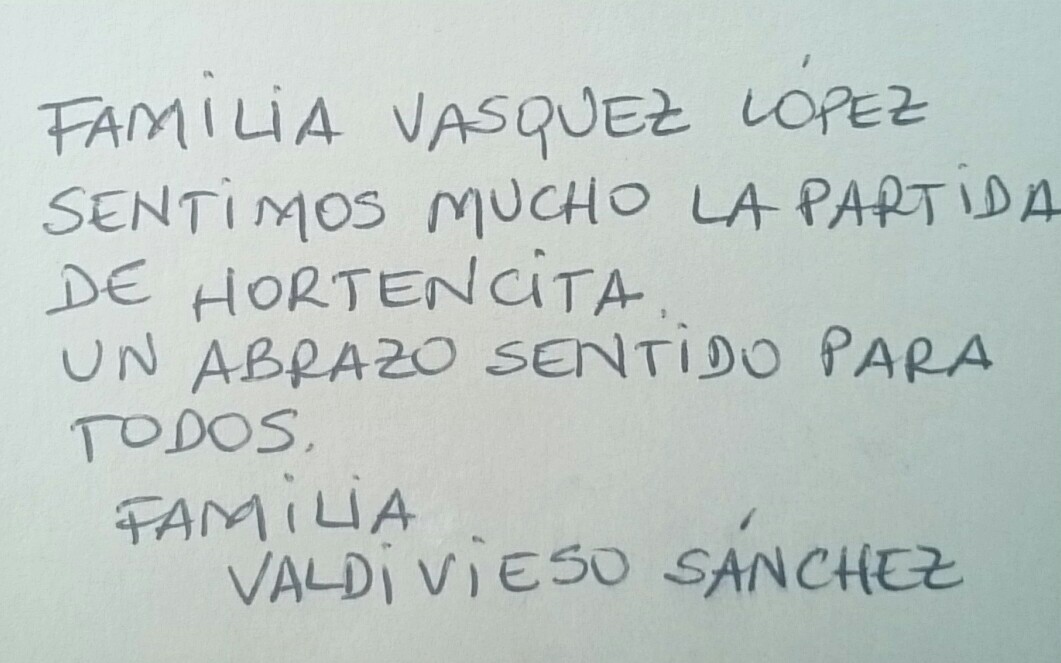 FAMILIA VASQUEZ LÓPEZ
SENTIMOS MUCHO LA PARTIDA
DE HORTENCITA.
UN ABRAZO SENTIDO PARA
TODOS.
FAMILIA
VALDIVIESO SÁNCHEZ